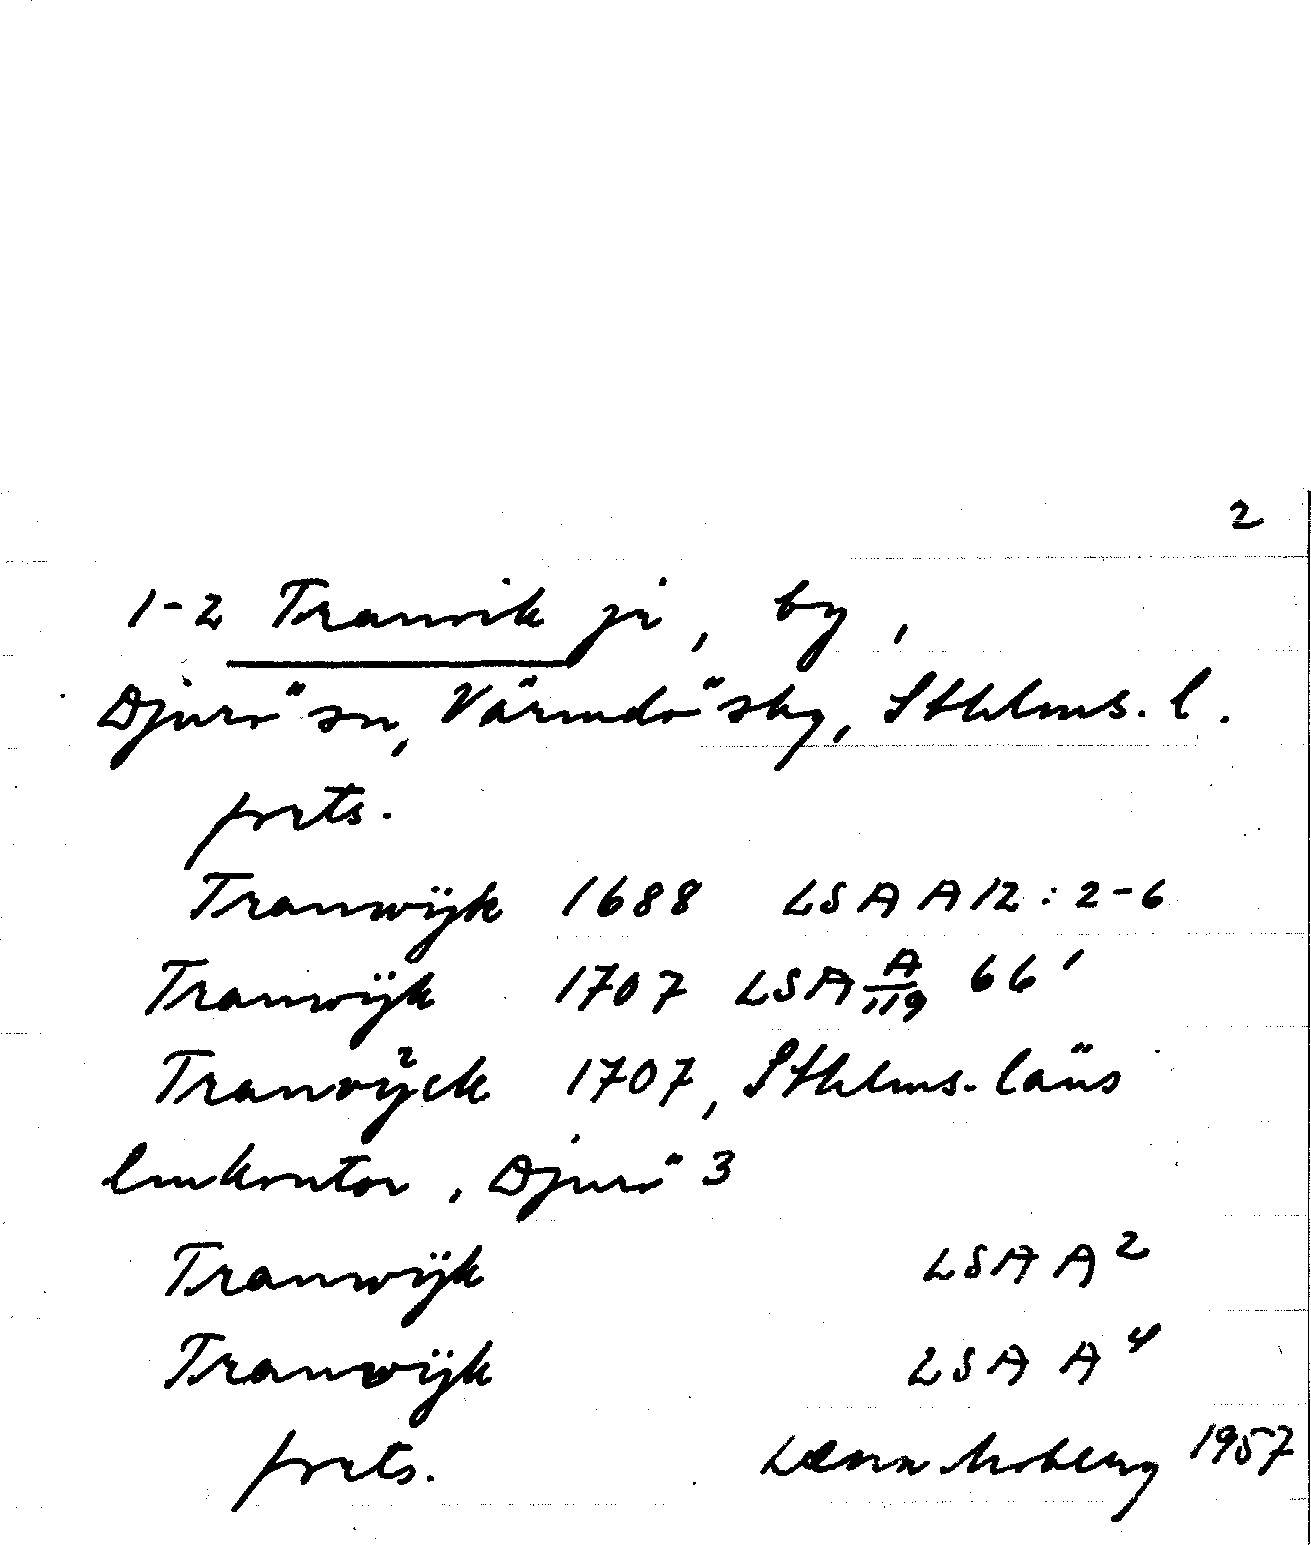 2
1-2 Tranvik ji, by,
Djurö sn, Värmdö skg, Sthlms. l.
forts.
Tranwijk 1688 LSA A 12:2-6
Tranwijk 1707 LSA A/119 66'
Tranvÿck 1707, Sthlms. läns
lmkontor, Djurö 3
Tranwijk LSA A²
Tranwijk LSA A⁴
forts. Moberg 1957